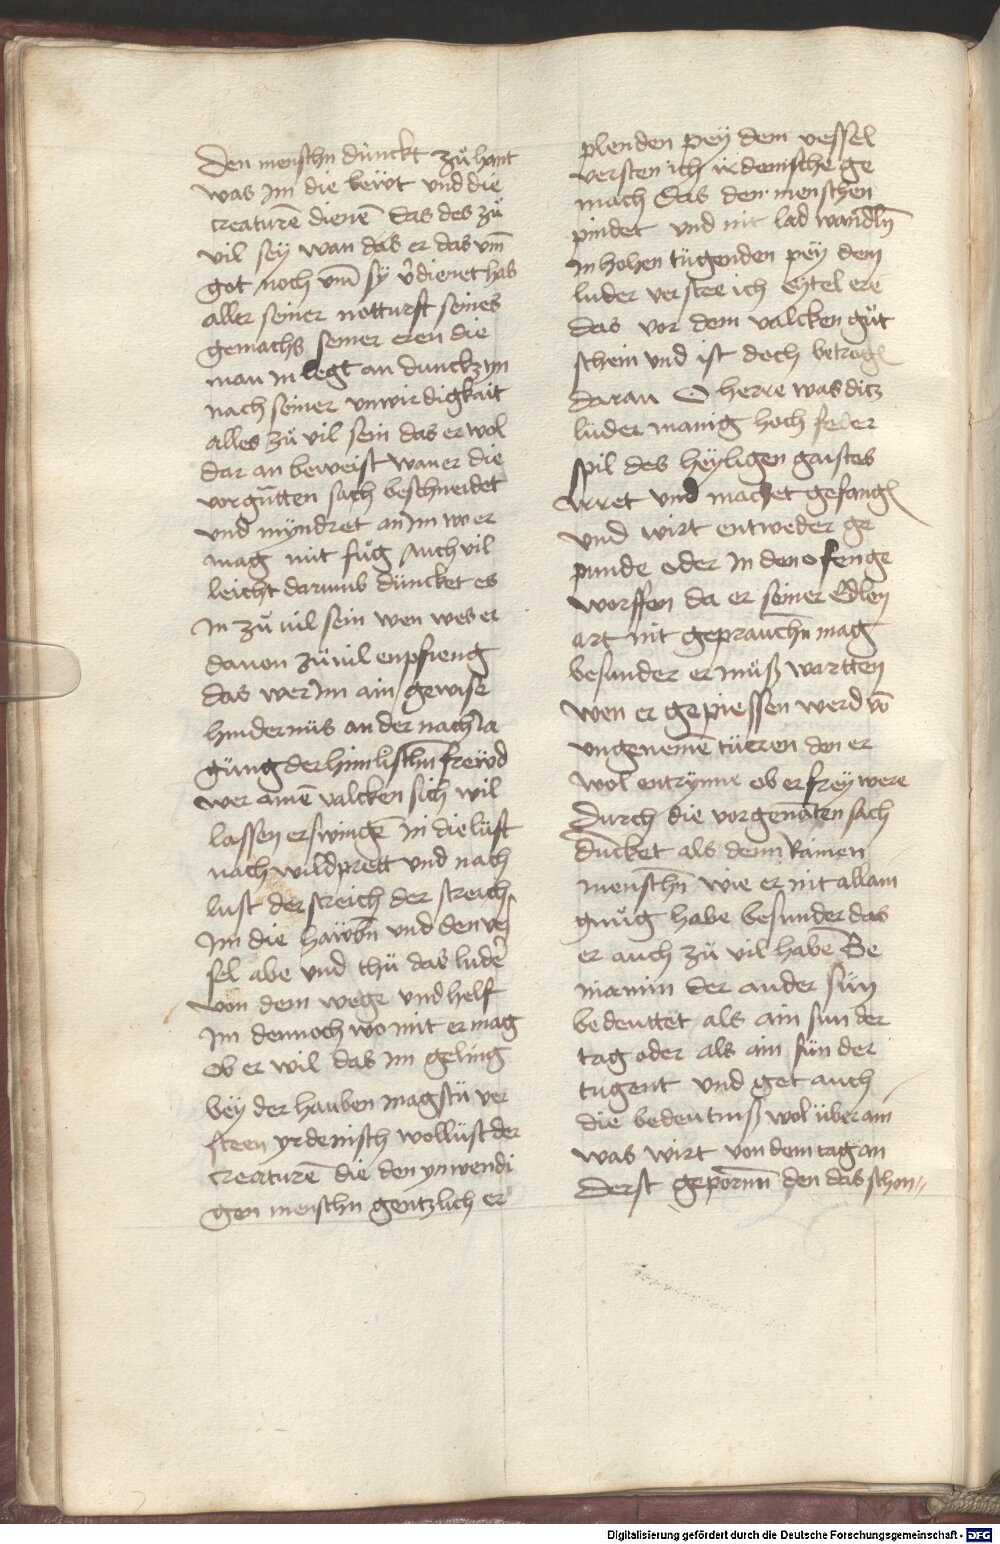 Den menschn dünckt zuͦ hant
was Im die beẅt vnd die
creaturē dienē das des zuͦ
vil seÿ wan das er das vm̄
got noch vm̄ sÿ v̉dienet hab
aller seiner notturft seines
gemachs seiner eren die
man In legt an dunckt yn
nach seiner vnwirdigkait
alles zuͦ vil sein das er wol
dar an beweist wan er die
vorgūtten sach beschneidet
vnd mÿndret an Im wo er
mag mit fuͦg Auch vil
leicht darumb düncket es
In zuͦ uil sein wen wes er
dauon züuil enpfieng
das wer Im ain gewise
hindernüs an der nach Ia
güng der himlischn̄ freẅd
wer ainē valcken sich wil
lassen erswingē in die lüft
nach wildprett vnd nach
lust der streich der streich
Im die haẅbn̄ vnd den ves
sel abe vnd thü das luder̉
von dem wege vnd helf
Im dennoch wo mit er mag
ob er wil das Im geling
beÿ der hauben mag stü ver
steen yrdenisch wollüst der
creaturē die den ynwendi
gen menschn gentzlich er
plenden peÿ dem vessel
versten ich irdenische ge
mach Das den menschen
pindet vnd nit lad wandln̄
In hohen tügenden peÿ dem
luder verstee ich eytel ere
das vor dem valcken guͦt
schein vnd ist doch betrog
daran O herre was ditz
lüder manig hoch feder
spil des heÿligen gaistes
Irret vnd machet gefang
vnd wirt entweder ge
punde oder In den ofen ge
worffen da er seiner Edlen
art nit geprauchn̄ mag
besunder er müß wartten
wen er gepiessen werd vō
vngenemē tüeren den er
wol entrynne ob er freÿ were
Durch die vorgenāten sach
duncket als denn kainen
menschn̄ wie er nit allain
gnuͦg habe besunder das
er auch zuͦ vil habe Be
niamin der ander sün
bedeuttet als ain sun der
tag oder als ain sün der
tugent vnd get auch
die bedeutniß wol über ain
was wirt von dem tag an
derst geporn̄n den das schon
Digitalisierung gefördert durch die Deutsche Forschungsgemeinschaft - DFG